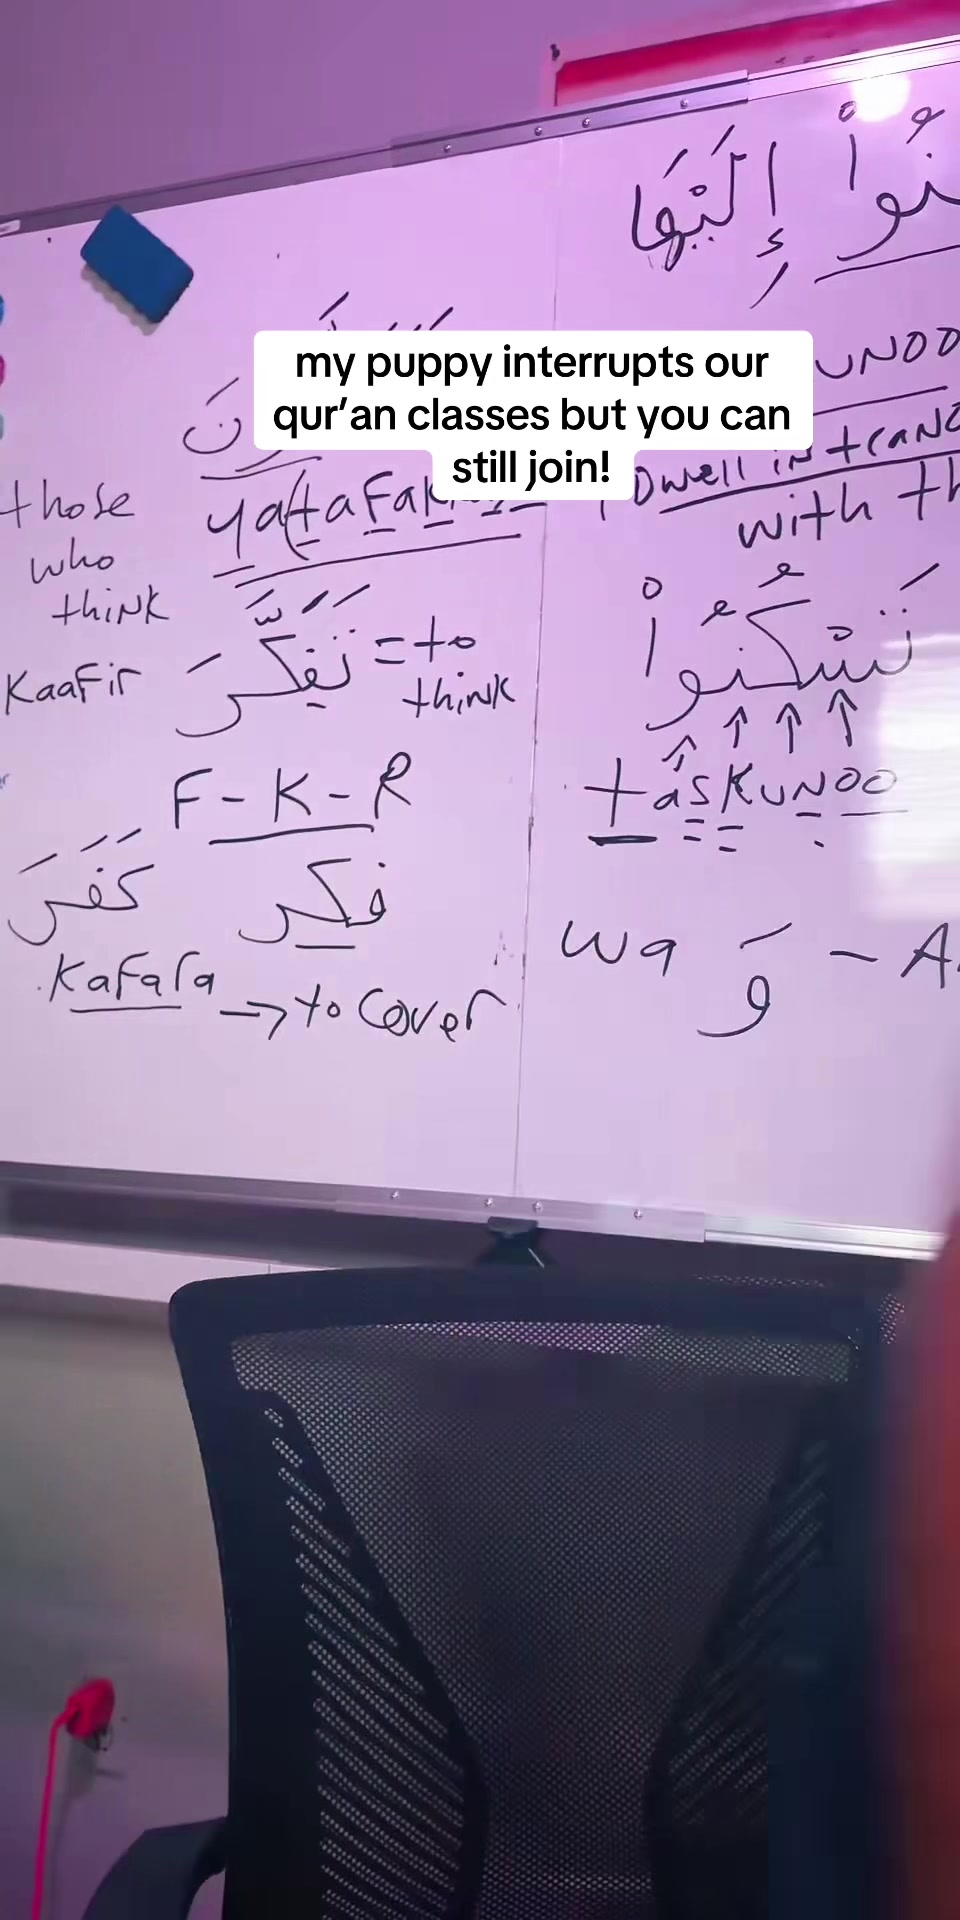 my puppy interrupts our
qur’an classes but you can
still join!
إِلَيْهَا
Dwell in
with
those
who
think
Kaafir
تَفَكَّرَ = to
think
F - K - R
كَفَرَ
فكر
Kafara → to cover
تَسْكُنُواْ
taskunoo
wa وَ -